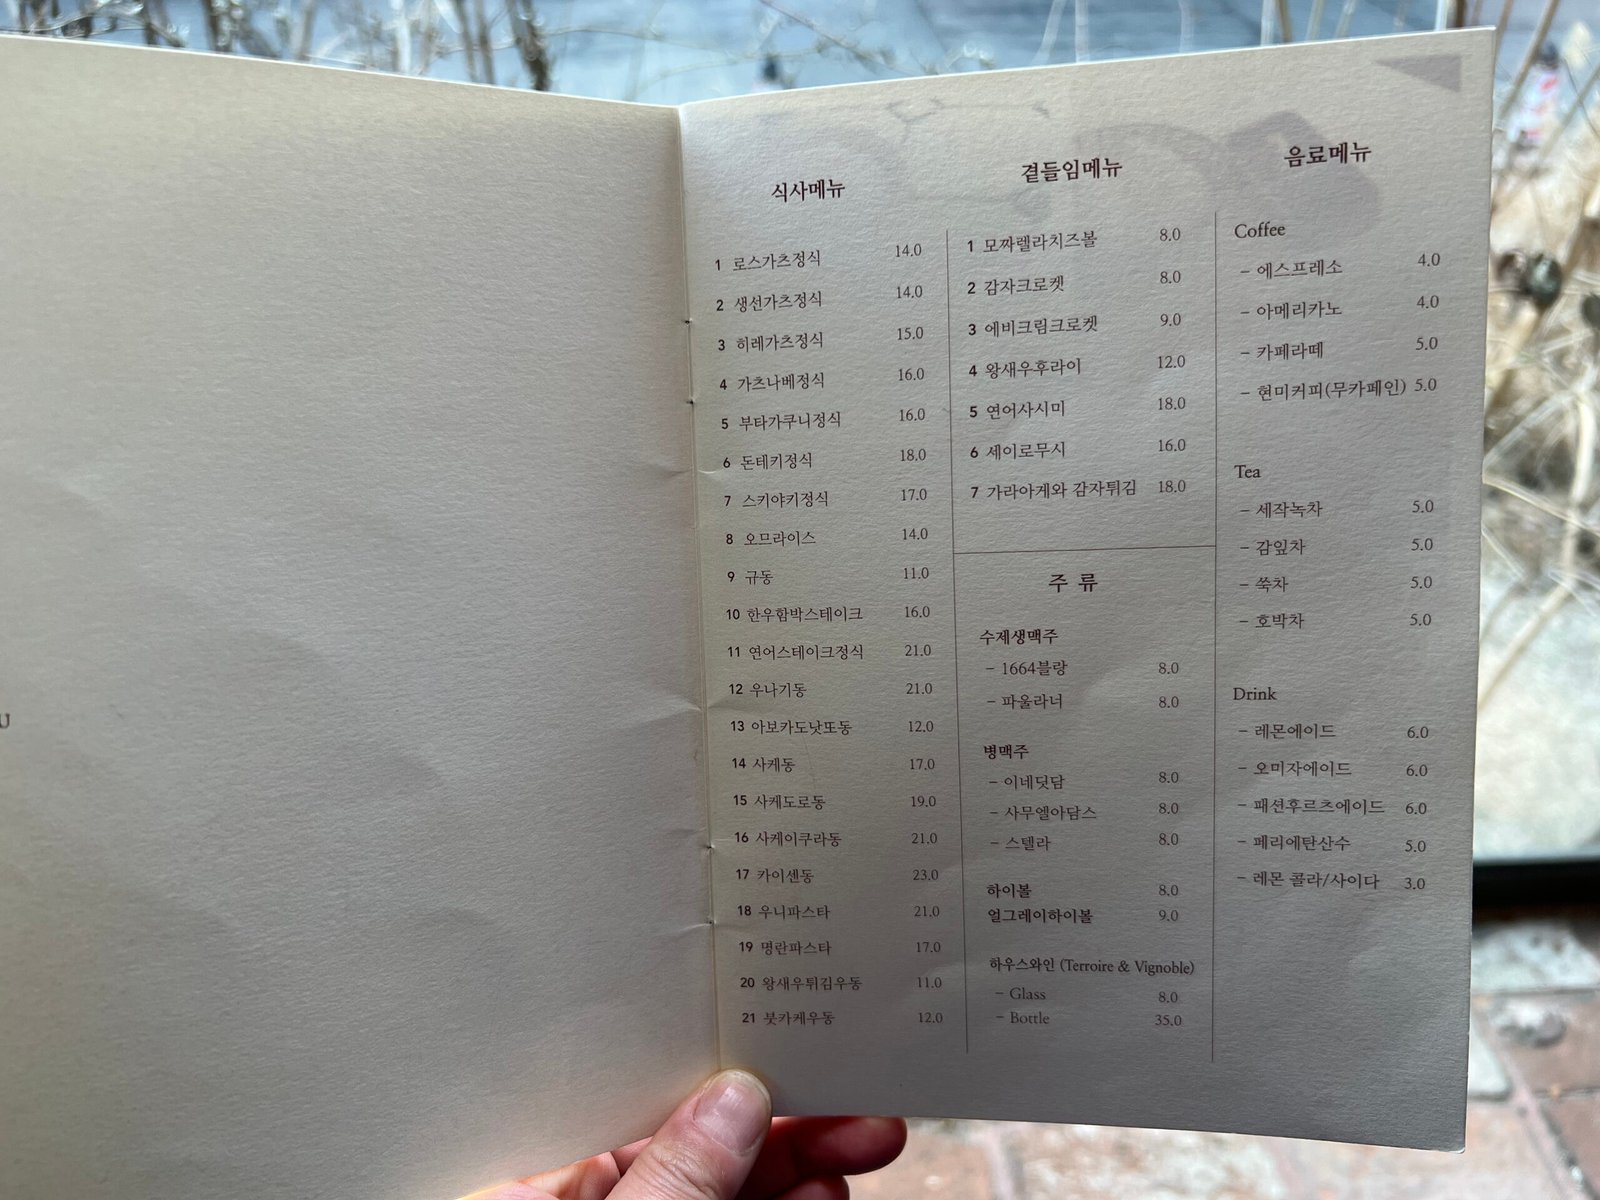 U
식사메뉴
1 로스가츠정식 14.0
2 생선가츠정식 14.0
3 히레가츠정식 15.0
4 가츠나베정식 16.0
5 부타가쿠니정식 16.0
6 돈테키정식 18.0
7 스키야키정식 17.0
8 오므라이스 14.0
9 규동 11.0
10 한우함박스테이크 16.0
11 연어스테이크정식 21.0
12 우나기동 21.0
13 아보카도낫또동 12.0
14 사케동 17.0
15 사케도로동 19.0
16 사케이쿠라동 21.0
17 카이센동 23.0
18 우니파스타 21.0
19 명란파스타 17.0
20 왕새우튀김우동 11.0
21 붓카케우동 12.0
곁들임메뉴
1 모짜렐라치즈볼 8.0
2 감자크로켓 8.0
3 에비크림크로켓 9.0
4 왕새우후라이 12.0
5 연어사시미 18.0
6 세이로무시 16.0
7 가라아게와 감자튀김 18.0
주 류
수제생맥주
– 1664블랑 8.0
– 파울라너 8.0
병맥주
– 이네딧담 8.0
– 사무엘아담스 8.0
– 스텔라 8.0
하이볼 8.0
얼그레이하이볼 9.0
하우스와인 (Terroire & Vignoble)
– Glass 8.0
– Bottle 35.0
음료메뉴
Coffee
– 에스프레소 4.0
– 아메리카노 4.0
– 카페라떼 5.0
– 현미커피(무카페인) 5.0
Tea
– 세작녹차 5.0
– 감잎차 5.0
– 쑥차 5.0
– 호박차 5.0
Drink
– 레몬에이드 6.0
– 오미자에이드 6.0
– 패션후르츠에이드 6.0
– 페리에탄산수 5.0
– 레몬 콜라/사이다 3.0